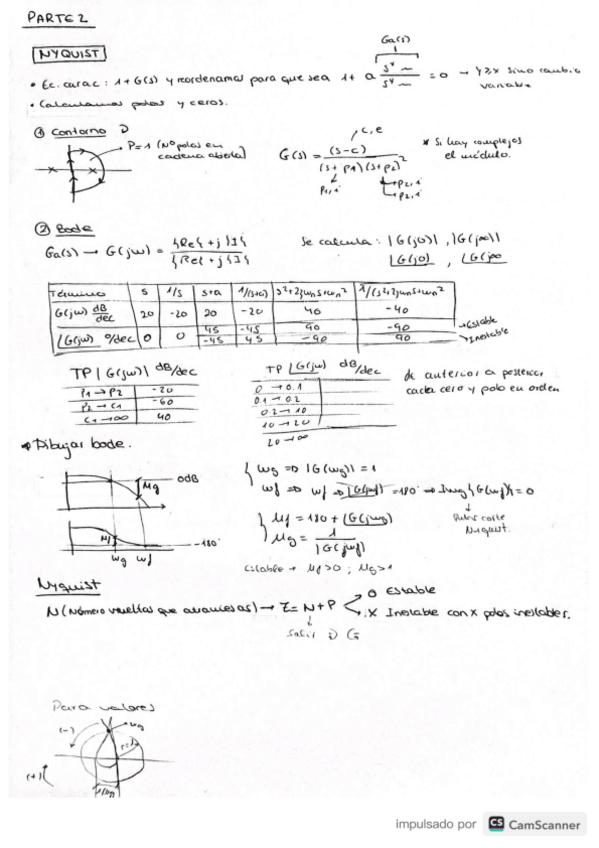 PARTE 2
NYQUIST
Ga(s)
• Ec. carac: 1+G(s) y reordenamos para que sea 1+ a s^x / s^y = 0 → y≥x sino cambio variable
• Calculamos polos y ceros.
① Contorno D
P=1 (Nº polos en cadena abierta)
G(s) = (s-c) / (s+p1)(s+p2)²
* Si hay complejos el módulo.
② Bode
Ga(s) → G(jw) = {Re{ +j}I{ / {Re{ +j}I{
Se calcula: |G(j0)|, |G(j∞)|
∠G(j0), ∠G(j∞
Término s 1/s s+a 1/(s+a) s²+2ζwns+wn² 1/(s²+2ζwns+wn²)
G(jw) dB/dec 20 -20 20 -20 40 -40
∠G(jw) º/dec 0 0 45 -45 90 -90 → Estable
-45 45 -90 90 → Inestable
TP |G(jw)| dB/dec
P1 → P2 -20
P2 → C1 -60
C1 → ∞ 40
TP ∠G(jw) dB/dec
0 → 0.1
0.1 → 0.2
0.2 → 10
10 → 20
20 → ∞
de anterior a posterior
cada cero y polo en orden
Dibujar bode.
0dB
Mg
Mf
-180
wg wf
wg => |G(wg)| = 1
wf => wf => ∠G(jwf) = 180° => Imag{G(wf)} = 0
Nyquist.
Mf = 180 + ∠G(jwg)
Mg = 1 / |G(jwf)|
Estable → Mf>0; Mg>1
Nyquist
N (Número vueltas que atraviesas) → Z = N+P
0 Estable
X Inestable con x polos inestables.
Salir D G
Para valores
(-)
wg
r=1
(+)
impulsado por CS CamScanner